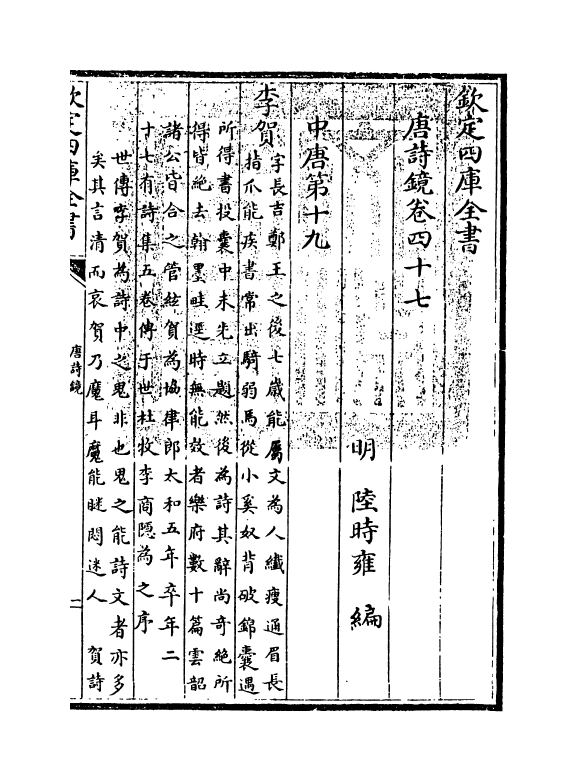 欽定四庫全書
唐詩鏡卷四十七
明 陸時雍 編
中唐第十九
李賀
字長吉鄭王之後七歲能屬文為人纖瘦通眉長
指爪能疾書常出騎弱馬從小奚奴背破錦囊遇
所得書投囊中未先立題然後為詩其辭尚奇絶所
得皆絶去翰墨畦逕時無能效者樂府數十篇雲韶
諸公皆合之管絃賀為協律郎太和五年卒年二
十七有詩集五卷傳于世杜牧李商隠為之序
世傳李賀為詩中之鬼非也鬼之能詩文者亦多
矣其言清而哀賀乃魔耳魔能眯悶迷人 賀詩
欽定四庫全書
唐詩鏡